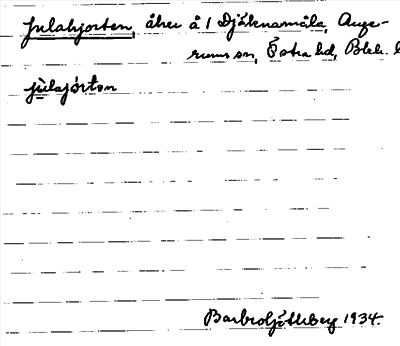 Julahjorten, åker å 1 Djäknamåla, Auge-
rums sn, Östra hd, Blek. l
jùlajórten
Barbro Götheberg 1934.